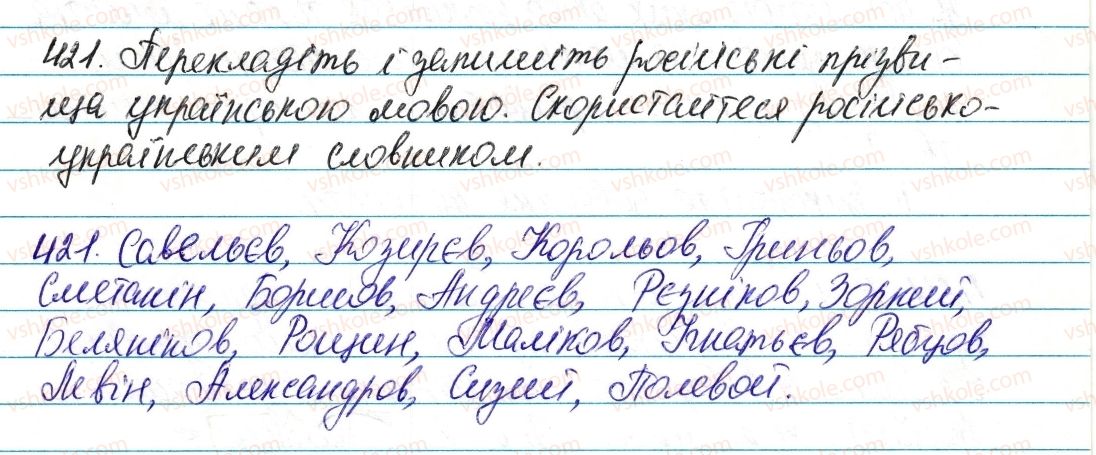 421. Перекладіть і запишіть російські прізви-
ща українською мовою. Скористайтеся російсько-
українським словником.
421. Савельєв, Козирєв, Корольов, Гриньов,
Сметанін, Борисов, Андреєв, Рєзніков, Зоркий,
Беляніков, Рощин, Маліков, Ігнатьєв, Рябцов,
Левін, Александров, Сизий, Полевой.